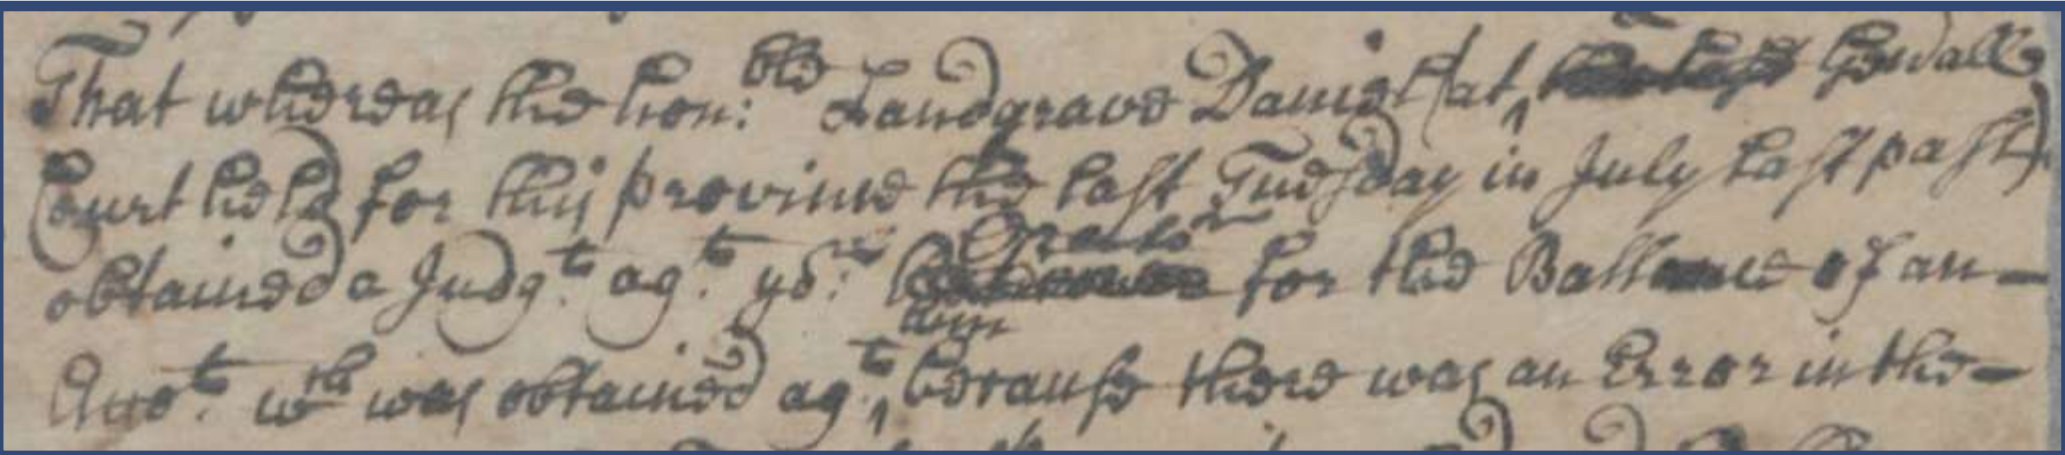 That whereas the hon:ble Landgrave Daniel at Genall
Court held for this province the last Tuesday in July last past
obtained a Judgt. agt. yor. Orator for the Ballance of an
Accot. wch was obtained agt. him because there was an Error in the